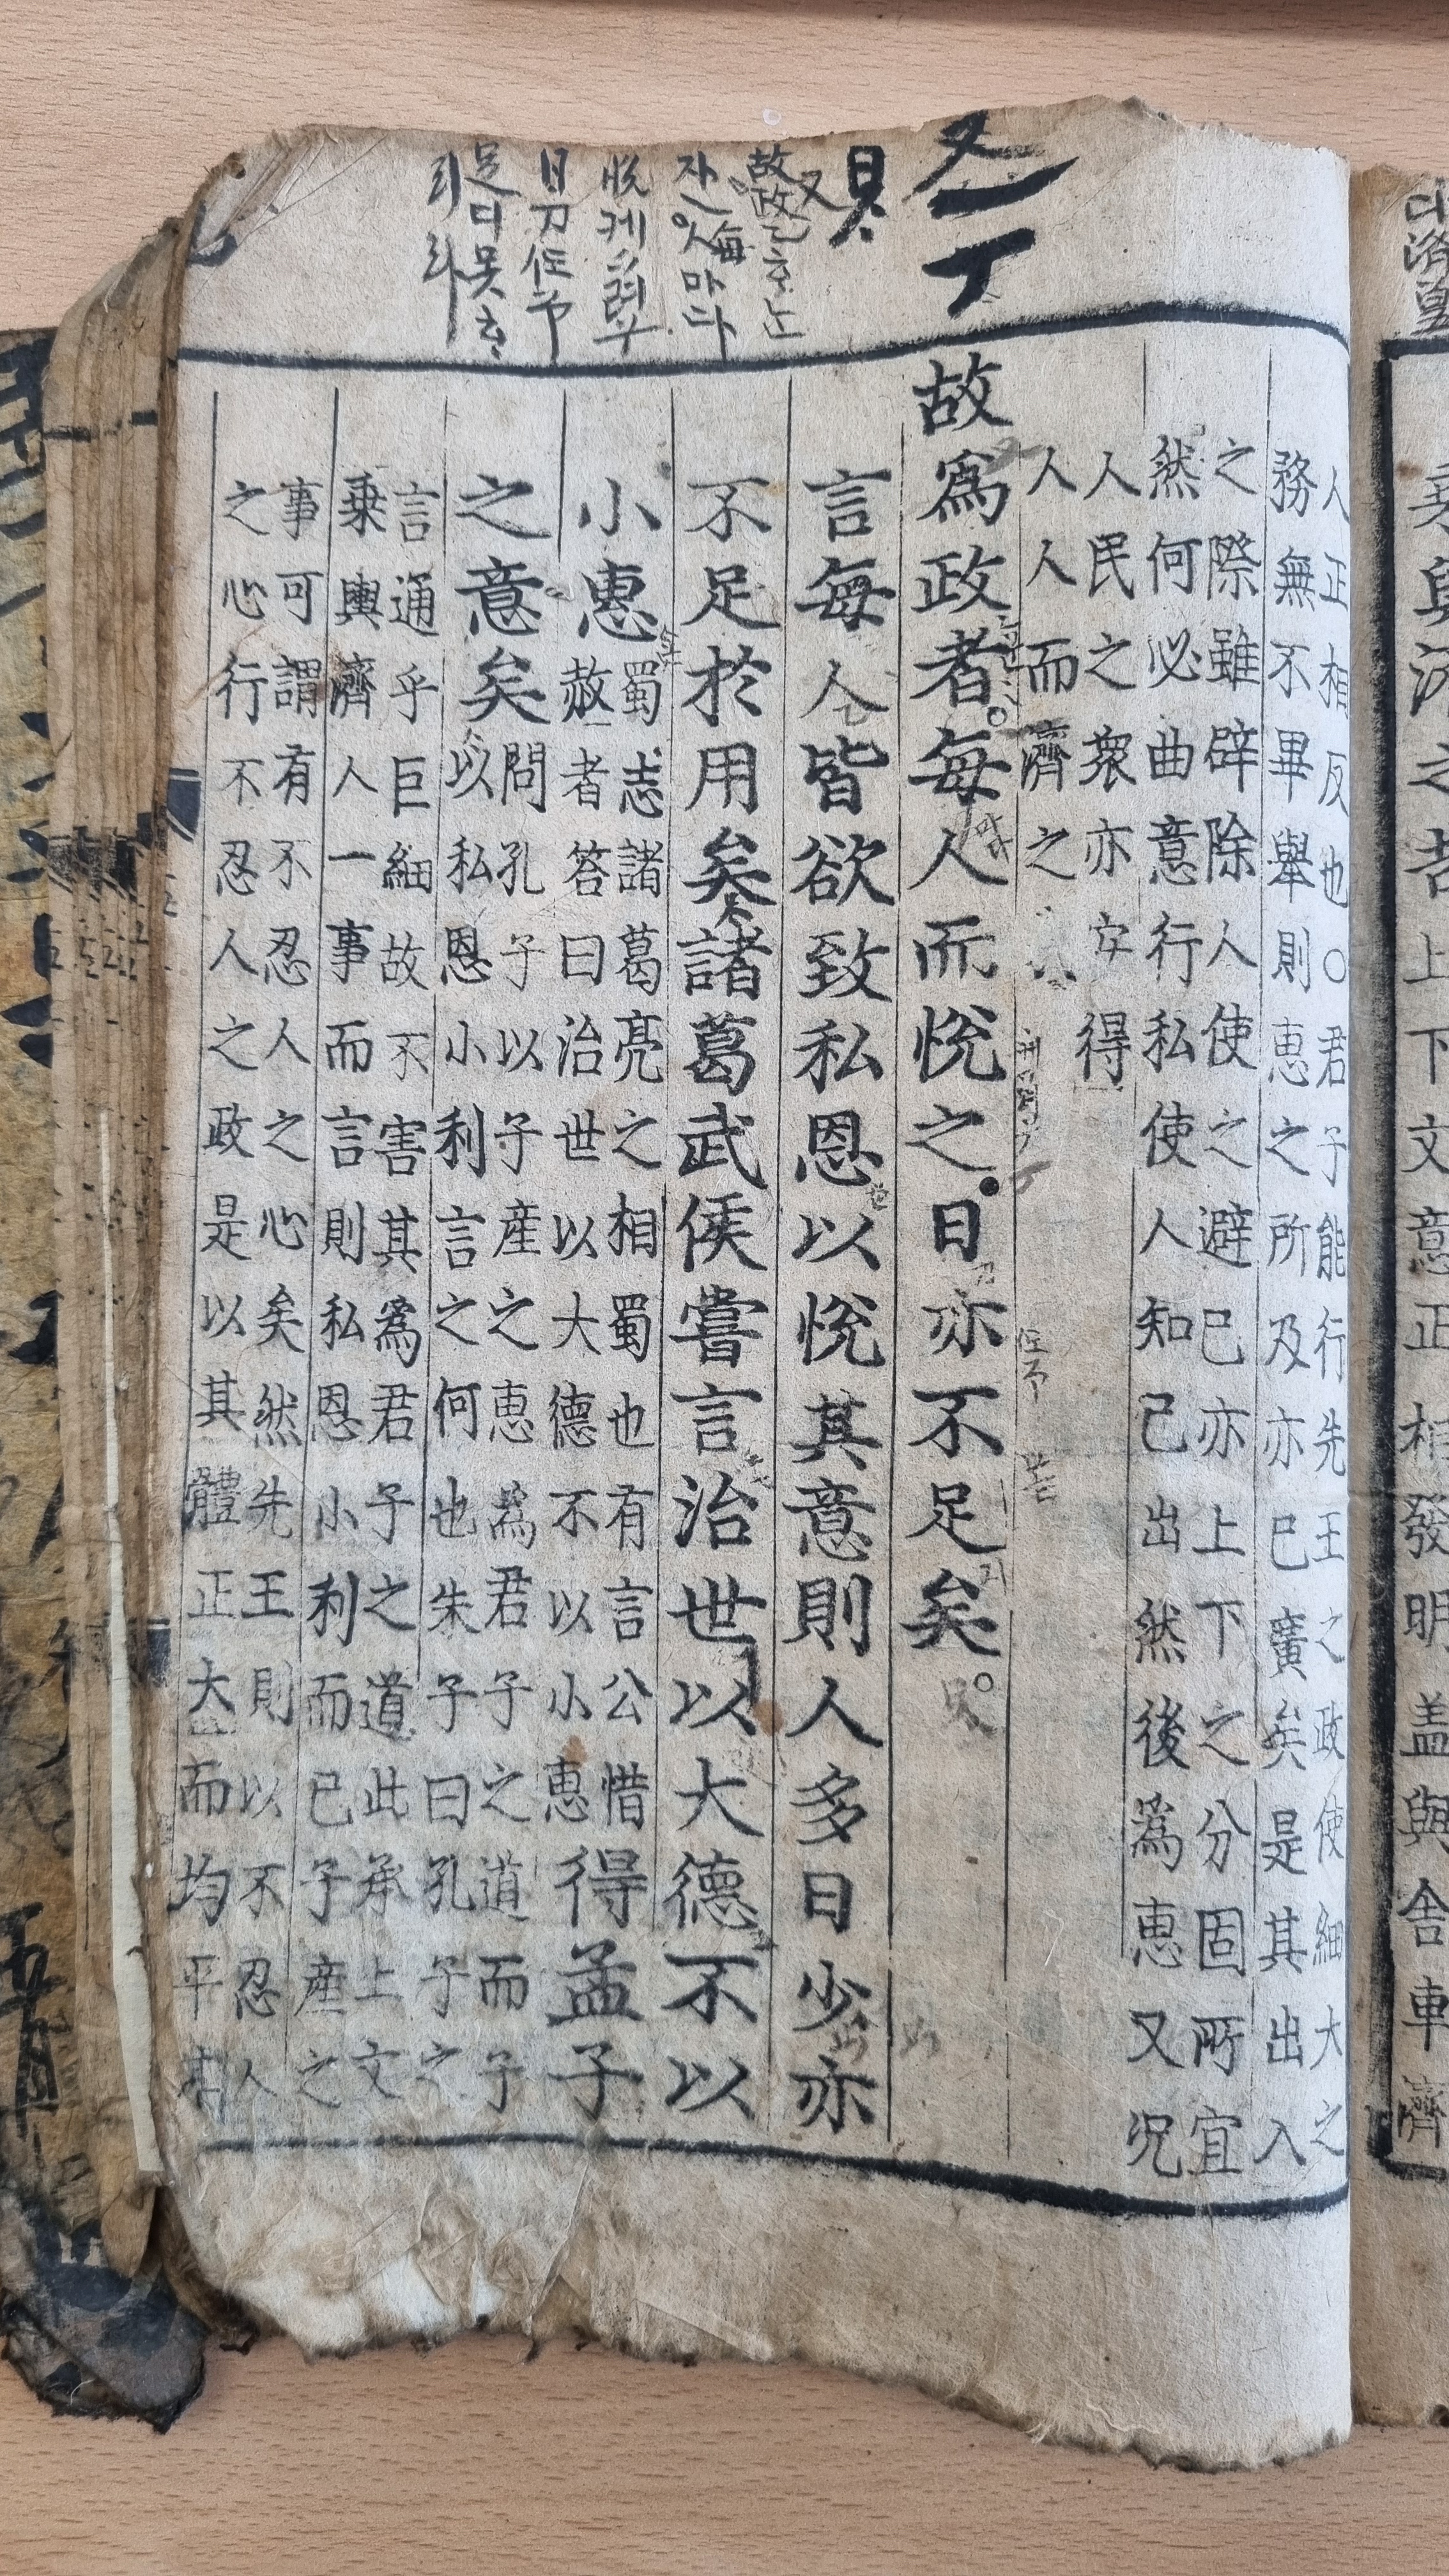 人正相反也○君子能行先王之政使細大之
務無不畢舉則惠之所及亦已廣矣是其出入
之際雖辟除人使之避已亦上下之分固所宜
然何必曲意行私使人知己出然後為惠又況
人民之衆亦安得
人人而濟之
故爲政者每人而悅之日亦不足矣
言每人皆欲致私恩以悅其意則人多日少亦
不足於用矣諸葛武侯嘗言治世以大德不以
小惠
蜀志諸葛亮之相蜀也有言公惜
赦者答曰治世以大德不以小惠
得孟子
之意矣
問孔子以子産之惠爲君子之道而子
以私恩小利言之何也朱子曰孔子之
言通乎巨細故不害其爲君子之道此承上文
乗輿濟人一事而言則私恩小利而已子産之
事可謂有不忍人之心矣然先王則以不忍人
之心行不忍人之政是以其體正大而均平
又
具
故政
悅케
日刀任予
足디못
리라